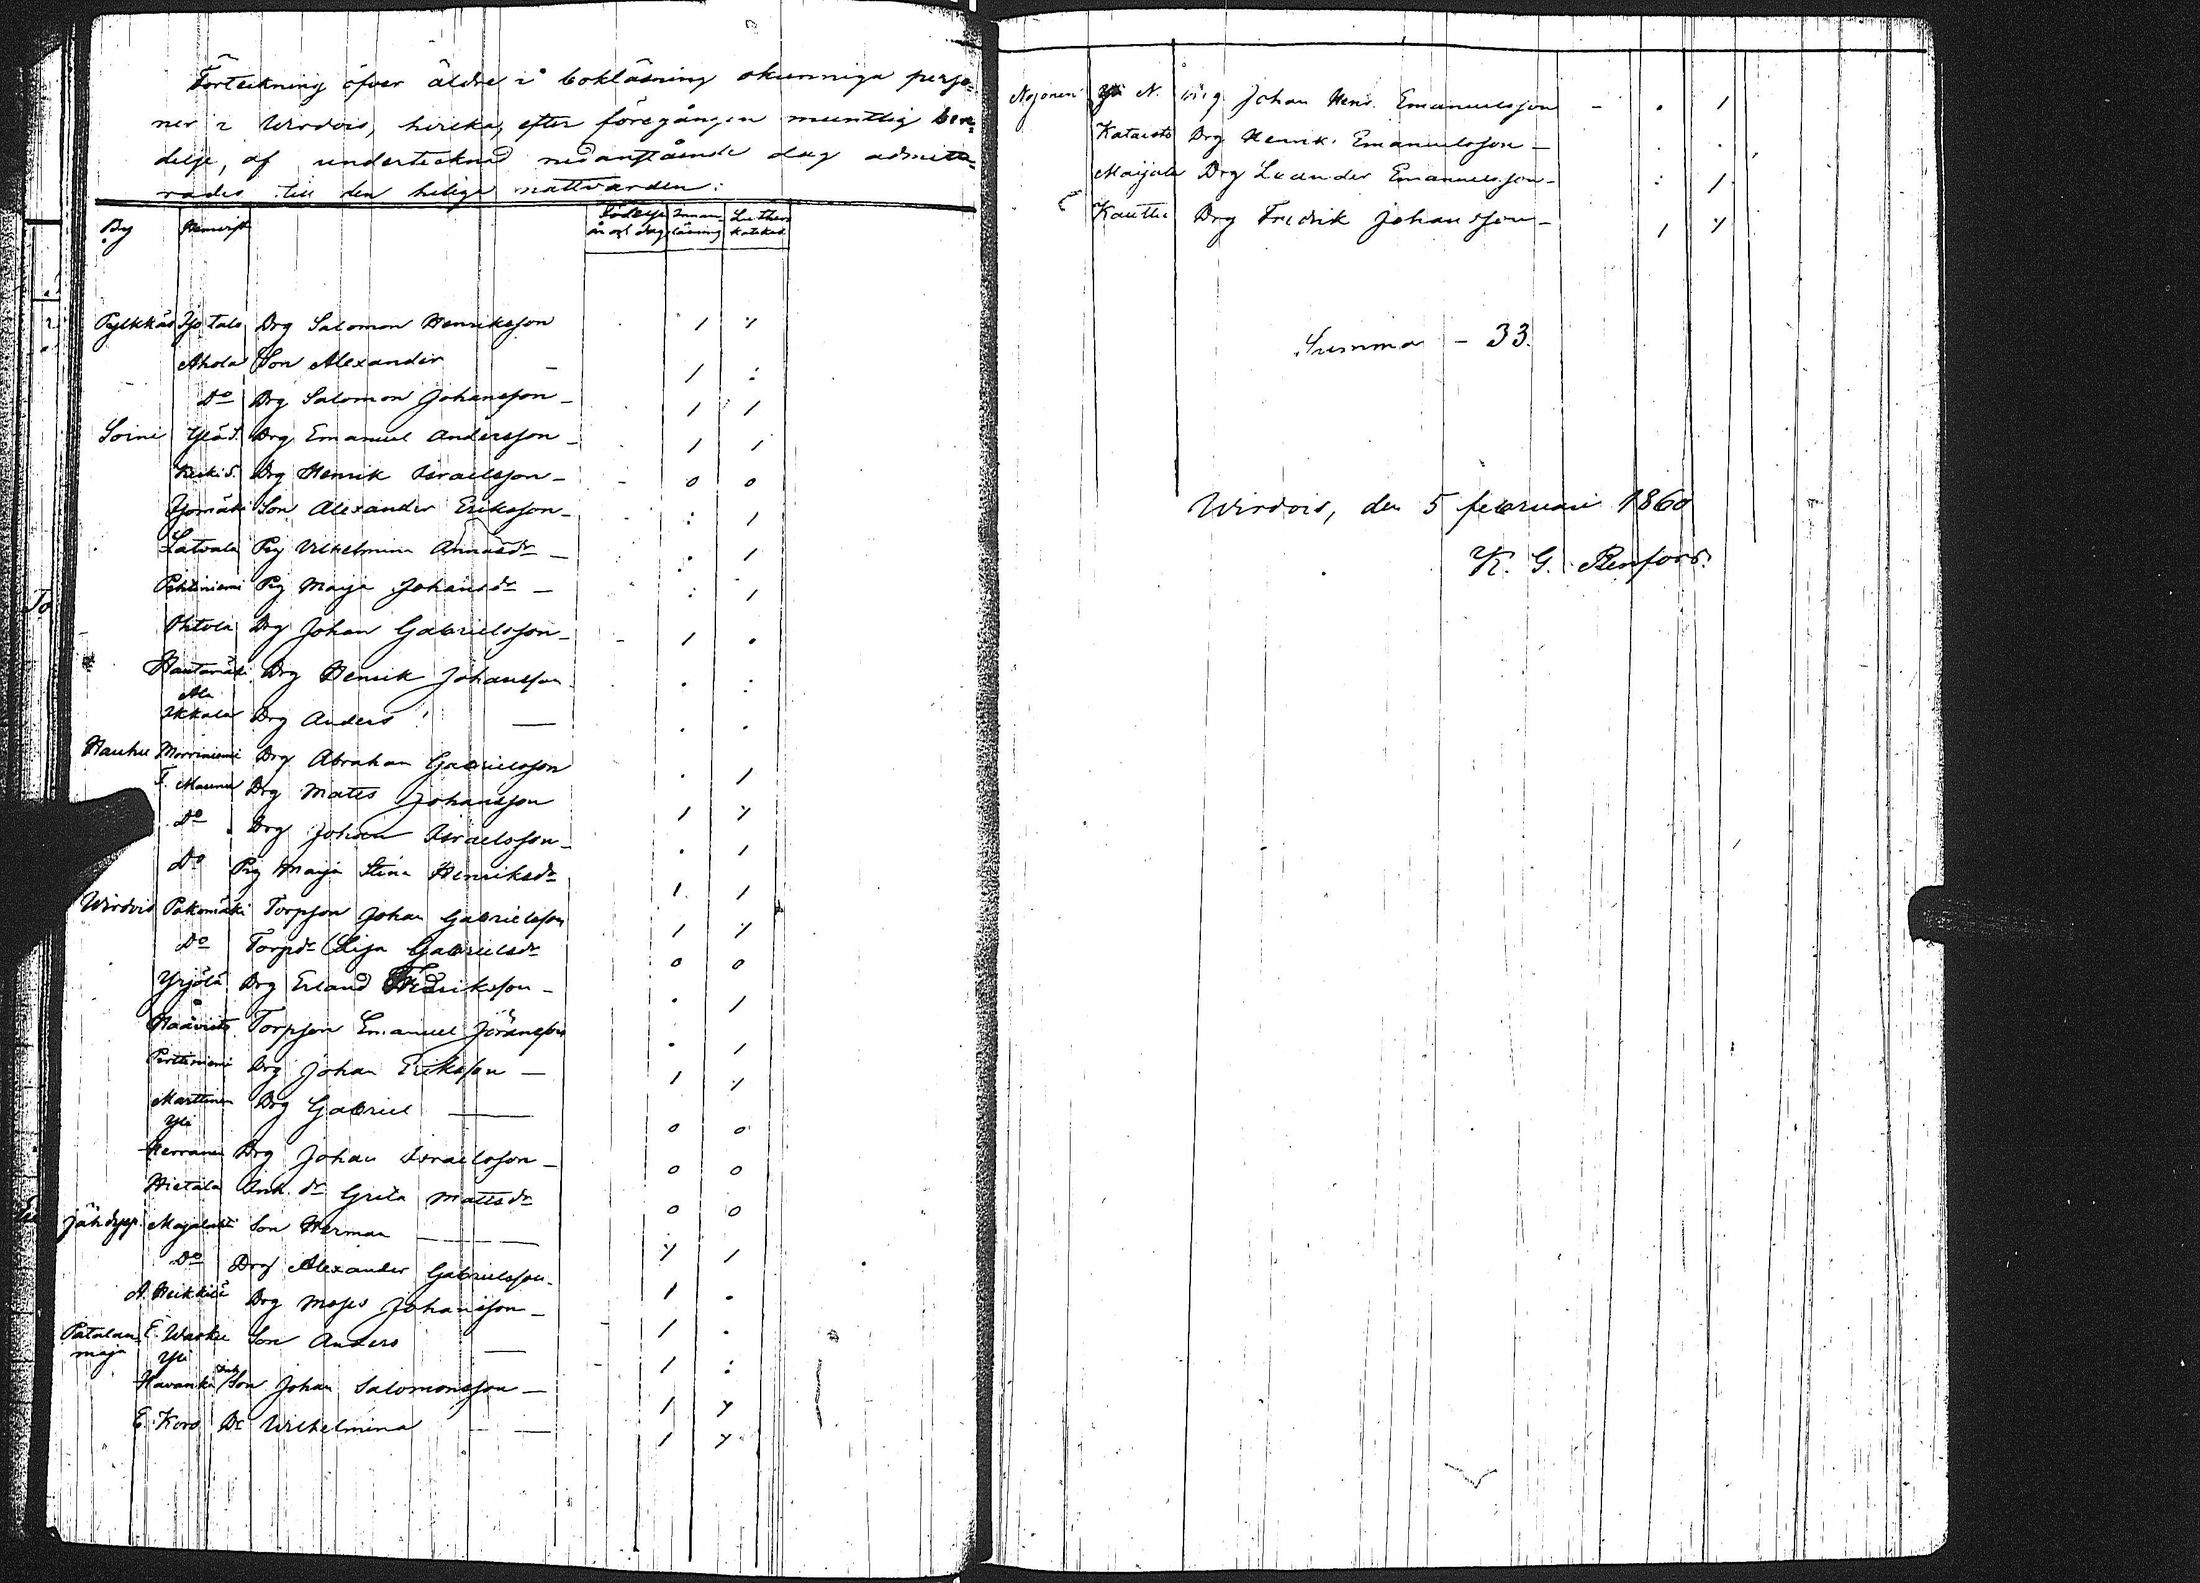 Förteckning öfver äldre i bokläsning okunniga perso-
ner i Wirdois, hvilka, efter föregången muntlig bere-
delse, af undertecknad nedanstående dag admitte-
rades till den heliga nattvarden:
By Hemvist Födelse år och dag Innanläsning Luthers katekes
Pylkkäs Iso talo Drg Salomon Henriksson / y
Ahola Son Alexander – / :
Do Drg Salomon Johansson – / /
Soini Ylä S. Drg Emanuel Andersson – / /
Keski S. Drg Henrik Israelsson – o o
Isomäki Son Alexander Eriksson – : /
Latvala Pig Vilhelmina Annasdr – . /
Pihtiniemi Pig Maija Johansdr – : /
Ohtola Drg Johan Gabrielsson – / .
Hautamäki Drg Henrik Johansson . :
Ala
Ikkala Drg Anders — . .
Hauhu Morriniemi Drg Abraham Gabrielsson . /
T. Mauna Drg Matts Johansson / y
Do Drg Johan Israelsson – . /
Do Pig Maija Stina Henriksdr / /
Wirdois Pakomäki Torpson Johan Gabrielsson / y
Do Torpdr Lisa Gabrielsdr o o
Yrjölä Drg Erland Fredriksson – . /
Haavisto Torpson Emanuel Göransson . /
Perttiniemi Drg Johan Eriksson – / y
Marttinen Drg Gabriel — o o
Yli
Herranen Drg Johan Israelsson – o o
Hietala Ink. dr Greta Mattsdr o o
Jähdysp. Majalahti Son Herman — y /
Do Drg Alexander Gabrielsson – / .
A. Heikkilä Drg Moses Johansson – / .
Patalan- E. Wasku Son Anders — / :
maja Yli
Havanka Son Johan Salomonsson – / y
E. Koro Dr Wilhelmina — / y
Nojonen Yli N. Drg Johan Henr. Emanuelsson – . /
Kataisto Drg Henrik Emanuelsson – . .
Maijala Drg Leander Emanuelsson – : /
Kauttu Drg Fredrik Johansson – / y
Summa – 33.
Wirdois, den 5 februari 1860
K. G. Renfors.